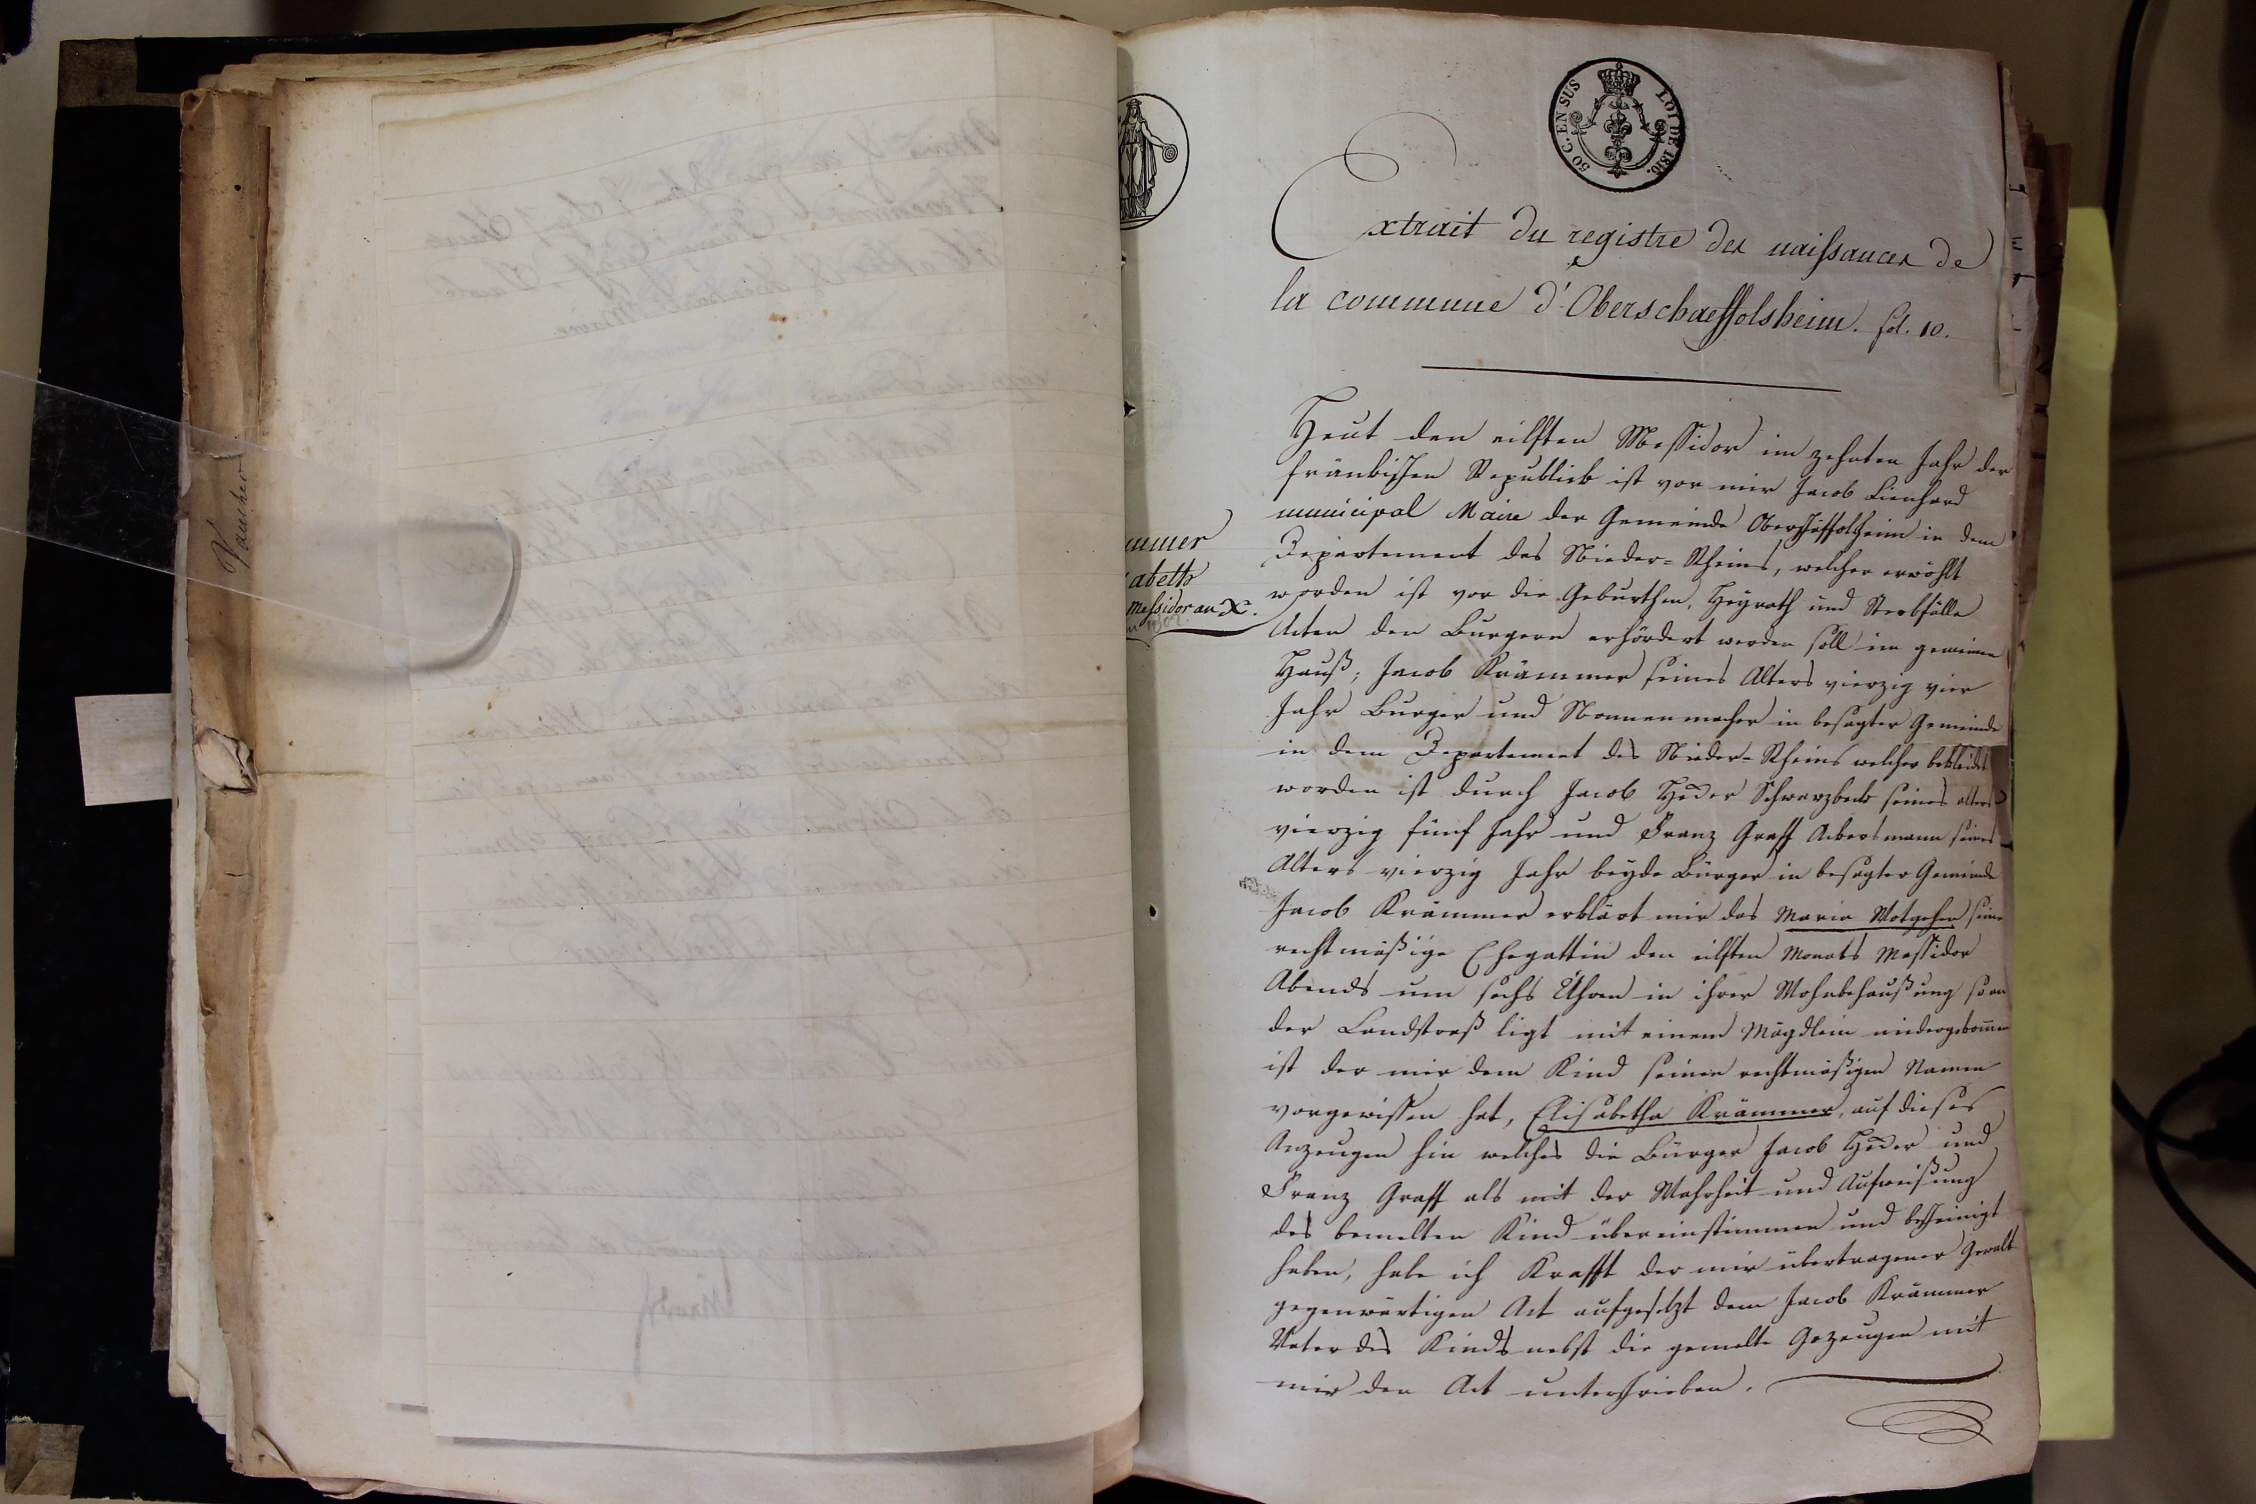 Vaucher
50 C. EN SUS
LOI DE 1816.
Extrait du registre des naissances de
la commune d'Oberschaeffolsheim. fol. 10.
mmer
abeth
Messidor an X.
Heut den eilften Messidor im zehnten Jahr der
fränkischen Republick ist vor mir Jacob Lienhard
municipal Maire der Gemeinde Oberschäffolsheim in dem
Departement des Nieder-Rheins, welcher erwöhlt
worden ist vor die Geburthen, Heyrath und Sterbfälle
Acten den Burgern erhördert werden soll im gemeinen
Hauß; Jacob Krämmer seines Alters vierzig vier
Jahr Burger und Nonnenmacher in besagter Gemeinde
in dem Departement des Nieder-Rheins welcher bekleidet
worden ist durch Jacob Heder Schwarzbeck seines alters
vierzig fünf Jahr und Franz Graff Ackersmann seines
Alters vierzig Jahr beyde Bürger in besagter Gemeinde
Jacob Krämmer erklärt mir das Maria seine
rechtmäßige Ehegattin den eilften Monats Messidor
Abends um sechs Uhren in ihrer Wohnbehaußung so an
der Landstraß ligt mit einem Mägdlein niedergekommen
ist der mir dem Kind seinen rechtmäßigen Namen
vorgewissen hat, Elisabetha Krämmer, auf dieses
Anzeugen hin welches die Bürger Jacob Heder und
Franz Graff als mit der Wahrheit und Aufweißung
des bemelten Kind übereinstimmen und bescheinigt
haben, habe ich Krafft der mir übertragener Gewalt
gegenwärtigen Act aufgesetzt dem Jacob Krämmer
Vater des Kinds nebst die gemelte Gezeugen mit
mir den Act unterschrieben.